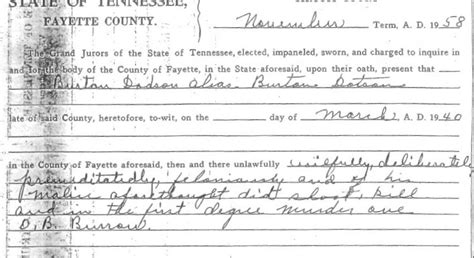 STATE OF TENNESSEE,
FAYETTE COUNTY.
November Term, A. D. 1958
The Grand Jurors of the State of Tennessee, elected, impaneled, sworn, and charged to inquire in
and for the body of the County of Fayette, in the State aforesaid, upon their oath, present that
Burton Dodson alias Burton Dotson
late of said County, heretofore, to-wit, on the day of March A. D. 1940
in the County of Fayette aforesaid, then and there unlawfully willfully, deliberately
premeditatedly, feloniously and of his
malice aforethought did shoot, kill
and in the first degree murder one
O. B. Burrow.